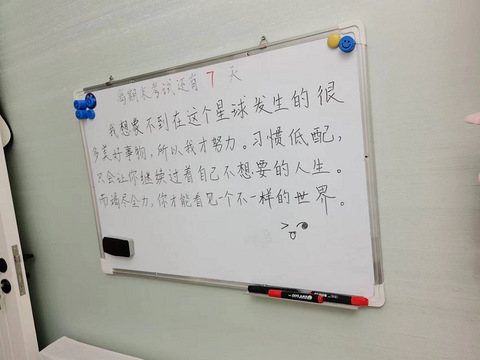 离期末考试还有 7 天
我想象不到在这个星球发生的很
多美好事物，所以我才努力。习惯低配，
只会让你继续过着自己不想要的人生。
而竭尽全力，你才能看见一个不一样的世界。